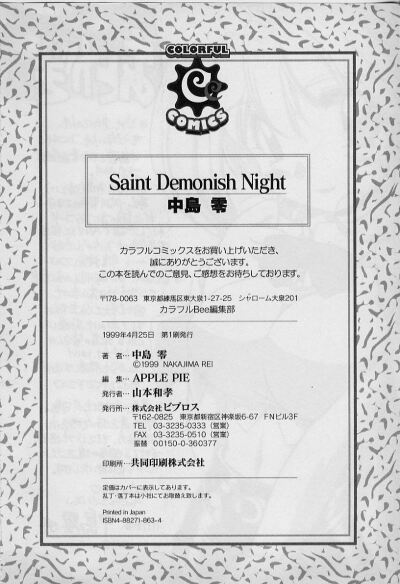 COLORFUL
COMICS
Saint Demonish Night
中島 零
カラフルコミックスをお買い上げいただき、
誠にありがとうございます。
この本を読んでのご意見、ご感想をお待ちしております。
〒178-0063 東京都練馬区東大泉1-27-25 シャローム大泉201
カラフルBee編集部
1999年4月25日 第1刷発行
著 者… 中島 零
©1999 NAKAJIMA REI
編 集… APPLE PIE
発行者… 山本和孝
発行所… 株式会社ビブロス
〒162-0825 東京都新宿区神楽坂6-67 FNビル3F
TEL 03-3235-0333(営業)
FAX 03-3235-0510(営業)
振替 00150-0-360377
印刷所… 共同印刷株式会社
定価はカバーに表示してあります。
乱丁・落丁本は小社にてお取替え致します。
Printed in Japan
ISBN4-88271-863-4